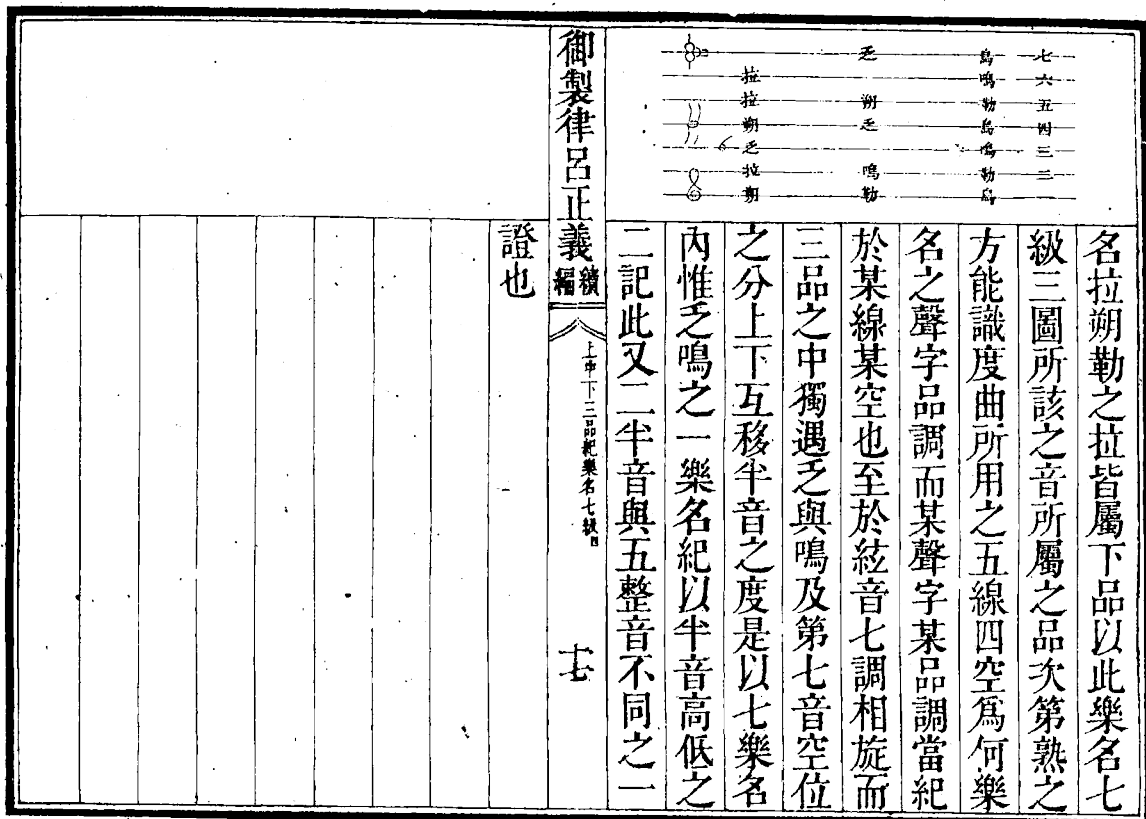 七 烏 乏
六 鳴 拉
五 勒 朔 拉
四 烏 乏 朔
三 鳴 乏
二 勒 鳴 拉
一 烏 勒 朔
名拉朔勒之拉皆屬下品以此樂名七
級三圖所該之音所屬之品次第熟之
方能識度曲所用之五線四空爲何樂
名之聲字品調而某聲字某品調當紀
於某線某空也至於絃音七調相旋而
三品之中獨遇乏與鳴及第七音空位
之分上下互移半音之度是以七樂名
內惟乏鳴之一樂名紀以半音高低之
二記此又二半音與五整音不同之一
御製律呂正義續編
上中下三品紀樂名七級四
十七
證也